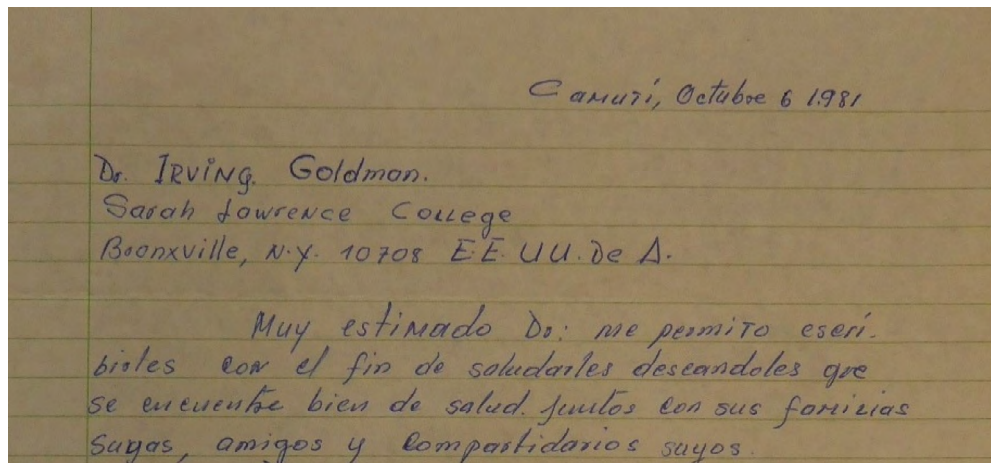 Camutí, Octubre 6 1.981
Dr. IRVING. Goldman.
Sarah Lawrence College
Bronxville, N.Y. 10708 E.E. UU. De A.
Muy estimado Dr: me permito escri-
birles con el fin de saludarles deseandoles que
se encuentre bien de salud. juntos con sus familias
sugas, amigos y compartidarios suyos.